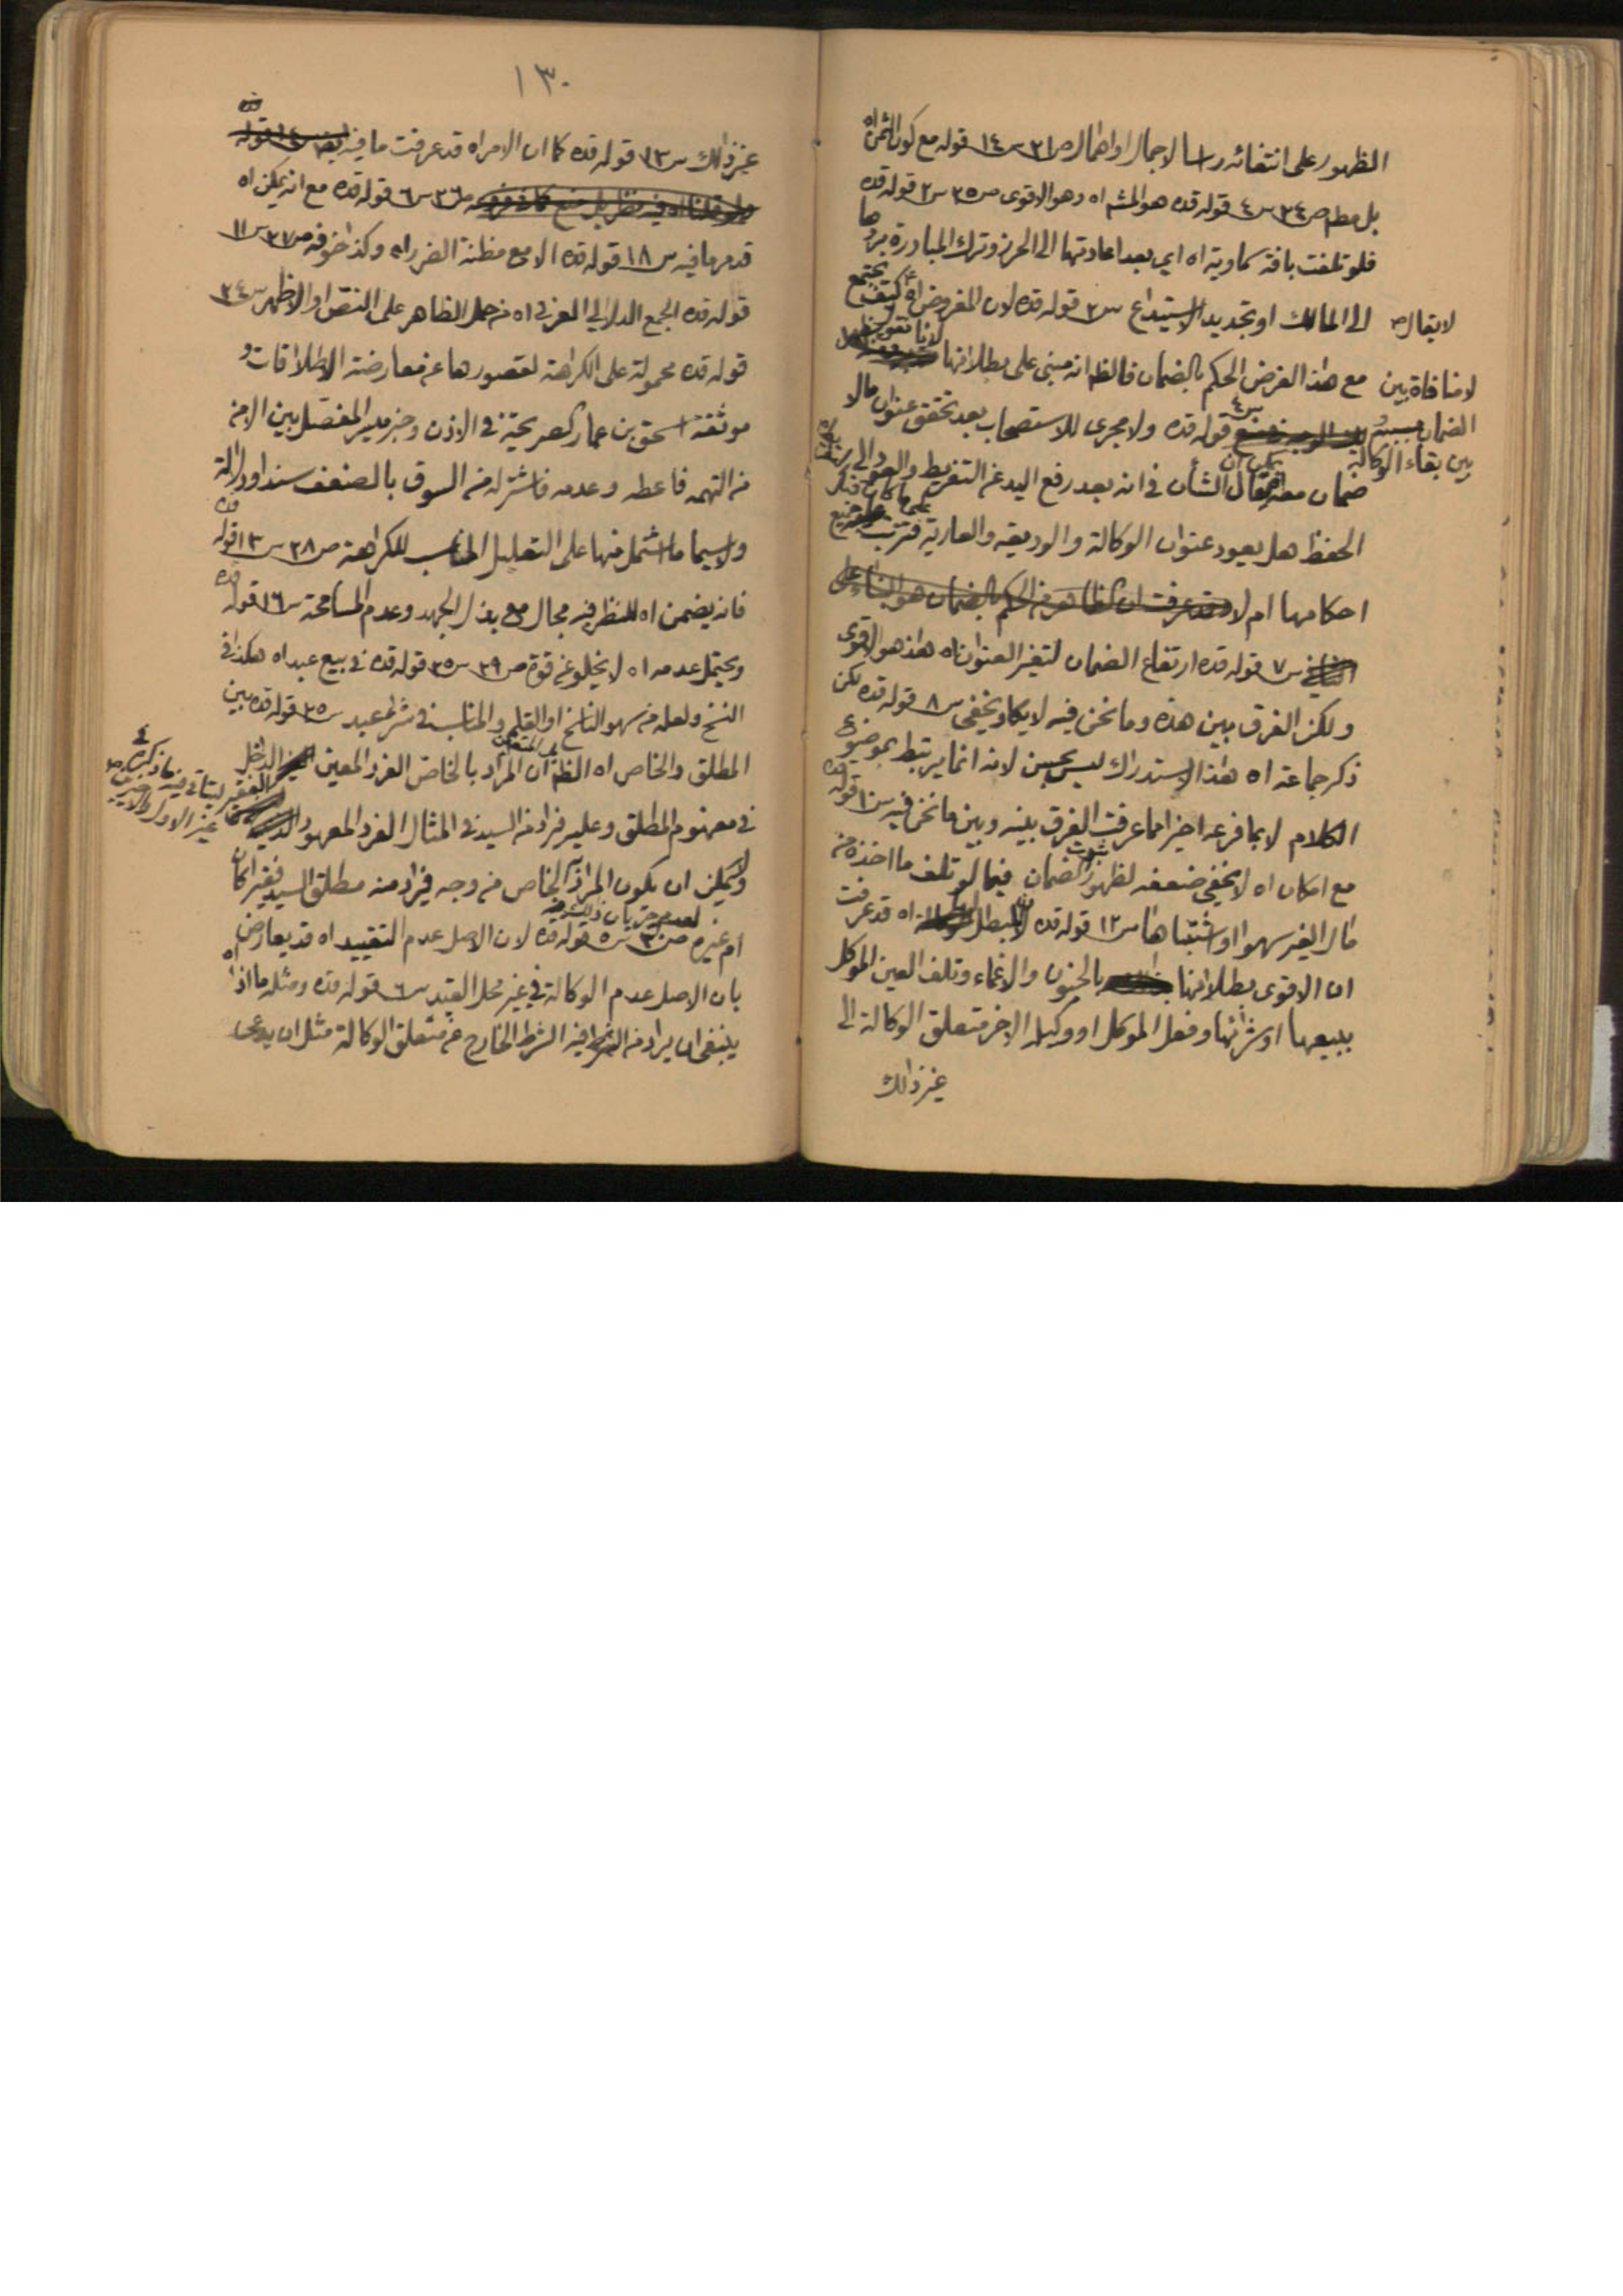 الظهور على انتفائه راسا لاجمال او اهمال ص٣١ س١٤ قوله مع كون الثمن اه
بل مطم ص٣٤ س٤ قوله قده هو المشه اه وهو الاقوى ص٣٥ س٢ قوله قده
فلو تلفت بافة سماوية اه اي بعد اعادتها الى الحرز وترك المبادرة بردها
الى المالك او تجديد الاستيداع س٣ قوله قده لان المفروض اه كيف يجتمع
مع هذا الفرض الحكم بالضمان فالظ انه مبنى على بطلانها
لا يقال
لا منافاة بين
الضمان
بين بقاء الوكالة
قوله قده ولا مجرى للاستصحاب بعد تحقق عنوان مالا
ضمان معه يمكن ان يقال الشأن في انه بعد رفع اليد عن التفريط والعود الى
الحفظ هل يعود عنوان الوكالة والوديعة والعارية فترتب جميع
احكامها ام لا
س٧ قوله قده ارتفاع الضمان لتغير العنوان اه هذا هو الاقوى
ولكن الفرق بين هذه وما نحن فيه لا يكاد يخفى س٨ قوله قده لكن
ذكر جماعة اه هذا الاستدراك ليس بحسن لانه انما يرتبط بموضوع
الكلام لا بما فرعه اخيرا مما عرفت الفرق بينه وبين ما نحن فيه س١٠ قوله قده
مع امكان اه لا يخفى ضعفه لظهور ثبوت الضمان فيما لو تلف ما اخذه من
مال الغير سهوا او اشتباها س١٢ قوله قده لا تبطل اه قد عرفت
ان الاقوى بطلانها بالجنون والاغماء وتلف العين الموكل
ببيعها او شرائها وفعل الموكل او وكيله الاخر متعلق الوكالة الى
غير ذالك
١٣٠
غير ذالك س١٣ قوله قده كما ان الامر اه قد عرفت ما فيه
ص٣٦ س٦ قوله قده مع انه يمكن اه
قد مر ما فيه س١٨ قوله قده الا مع مظنة الضرر اه وكذا خوفه ص٣٧ س١١
قوله قده الجمع الدلالي العرفي اه من حمل الظاهر على النص او الاظهر س٢٤
قوله قده محمولة على الكراهة لقصورها عن معارضة الاطلاقات و
موثقة اسحق بن عمار كصريحة في الاذن وخبر ميسر المفصل بين الامن
من التهمه فاعطه وعدمه فاشتر له من السوق بالضعف سندا ودلالة
ولا سيما ما اشتمل منها على التعليل المناسب للكراهة ص٣٨ س١٣ قوله قده
فانه يضمن اه للنظر فيه مجال مع بذل الجهد وعدم المسامحة س١٦ قوله قده
ويحتمل عدمه اه لا يخلو عن قوة ص٣٩ س٣٥ قوله قده في بيع عبد اه هكذا في
النسخ ولعله من سهو الناسخ او القلم والمناسب في شراء عبد س٣٥ قوله قده بين
المطلق والخاص اه الظ ان المراد بالخاص الفرد المعين الداخل
في مفهوم المطلق وعليه فيراد من السيد في المثال الفرد المعهود
ولا يمكن ان يكون المراد الخاص من وجه فيراد منه مطلق السيد فقيرا كان
ام غيره ص٣٠ س٥ قوله قده لان الاصل عدم التقييد اه قد يعارض
بان الاصل عدم الوكالة في غير محل القيد س٦ قوله قده ومثله ما اذا اه
ينبغى ان يراد من الشرط فيه الشرط الخارج عن متعلق الوكالة مثل ان يدعى